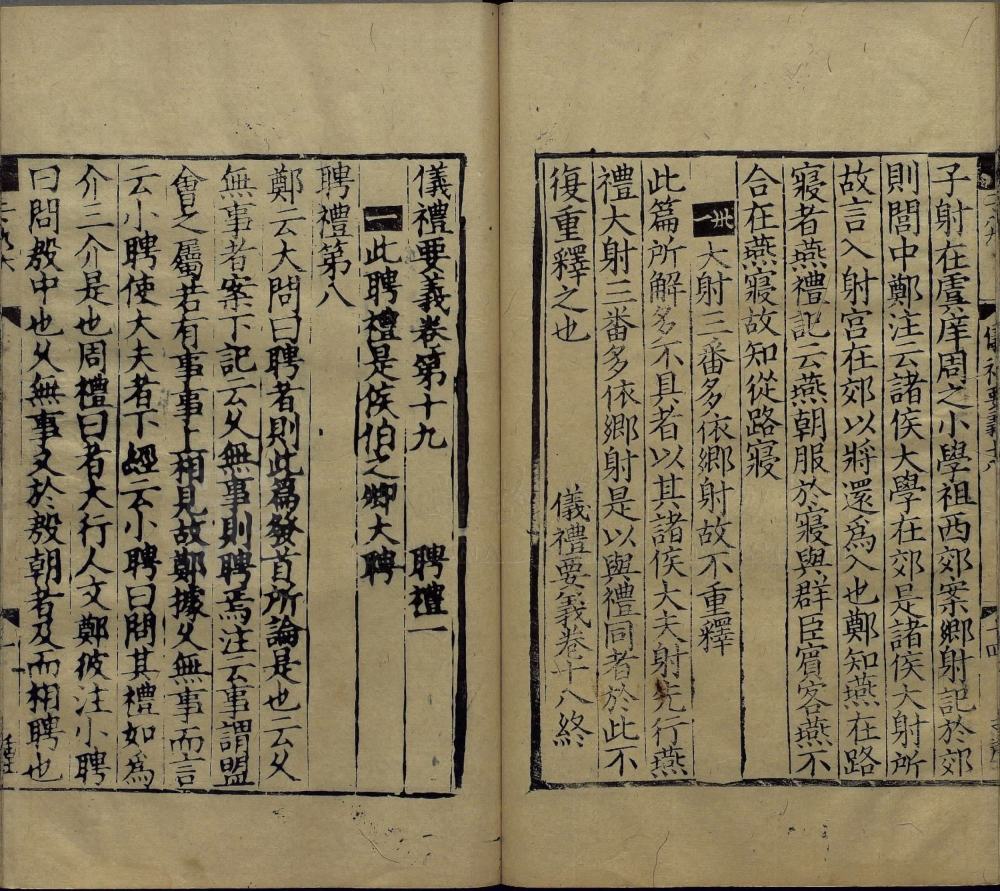 子射在虞庠周之小學祖西郊案鄉射記於郊
則閭中鄭注云諸侯大學在郊是諸侯大射所
故言入射宮在郊以將還為入也鄭知燕在路
寢者燕禮記云燕朝服於寢與群臣賓客燕不
合在燕寢故知從路寢
卅一 大射三番多依鄉射故不重釋
此篇所解多不具者以其諸侯大夫射先行燕
禮大射三番多依鄉射是以與禮同者於此不
復重釋之也 儀禮要義卷十八終
儀禮要義卷第十九 聘禮一
一 此聘禮是侯伯之卿大聘
聘禮第八
鄭云大問曰聘者則此為發首所論是也云久
無事者案下記云久無事則聘焉注云事謂盟
會之屬若有事事上相見故鄭據久無事而言
云小聘使大夫者下經云小聘曰問其禮如為
介三介是也周禮曰者大行人文鄭彼注小聘
曰問殷中也久無事又於殷朝者及而相聘也